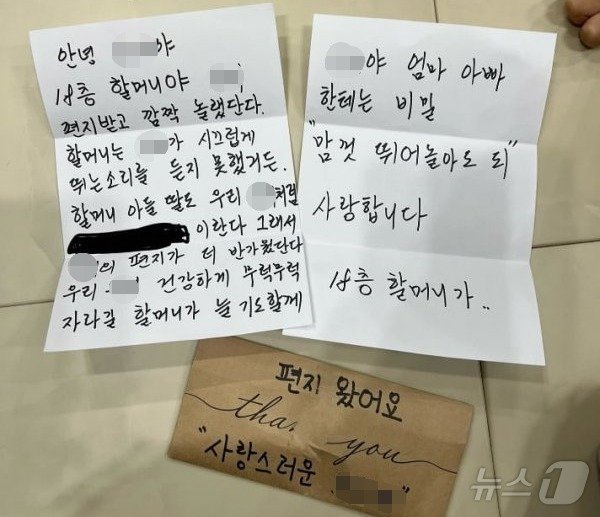 안녕 야
18층 할머니야
편지받고 깜짝 놀랬단다.
할머니는 가 시끄럽게
뛰는소리를 듣지 못했거든.
할머니 아들 딸도 우리 처럼
이란다 그래서
의 편지가 더 반가웠단다
우리 건강하게 무럭무럭
자라길 할머니가 늘 기도할께
야 엄마 아빠
한테는 비밀
"맘껏 뛰어놀아도 되"
사랑합니다
18층 할머니가..
편지 왔어요
thank you
"사랑스러운 "
뉴스1